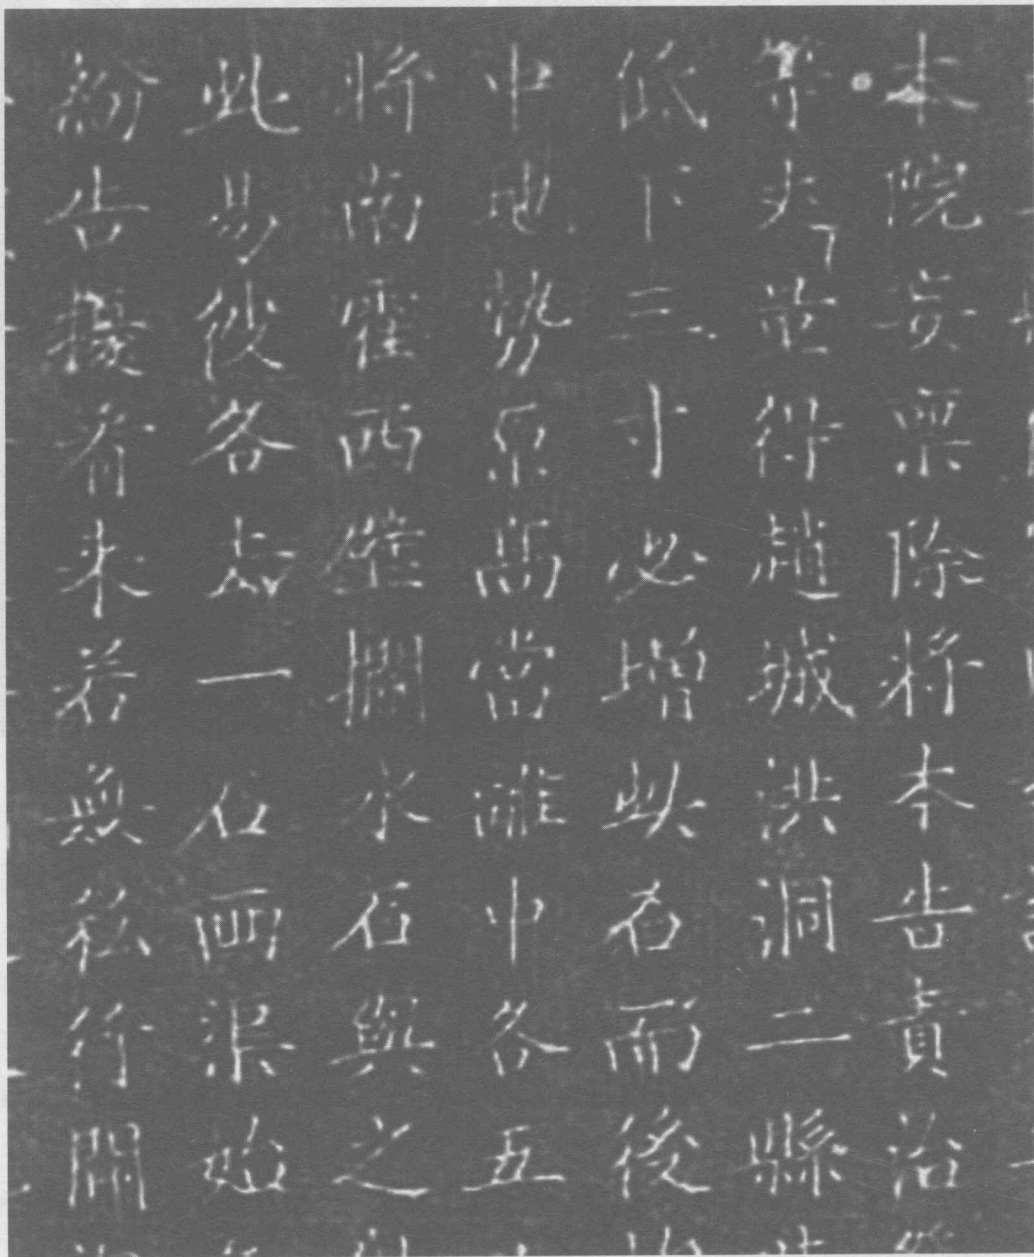 本院妄禀除将本告責治
等並得趙城洪洞二縣
低下三寸必增此石而後
中地勢原高當灘中各五
将南霍西壁攔水石與之
此易彼各一石両渠始
紛告擾者来若無私行開